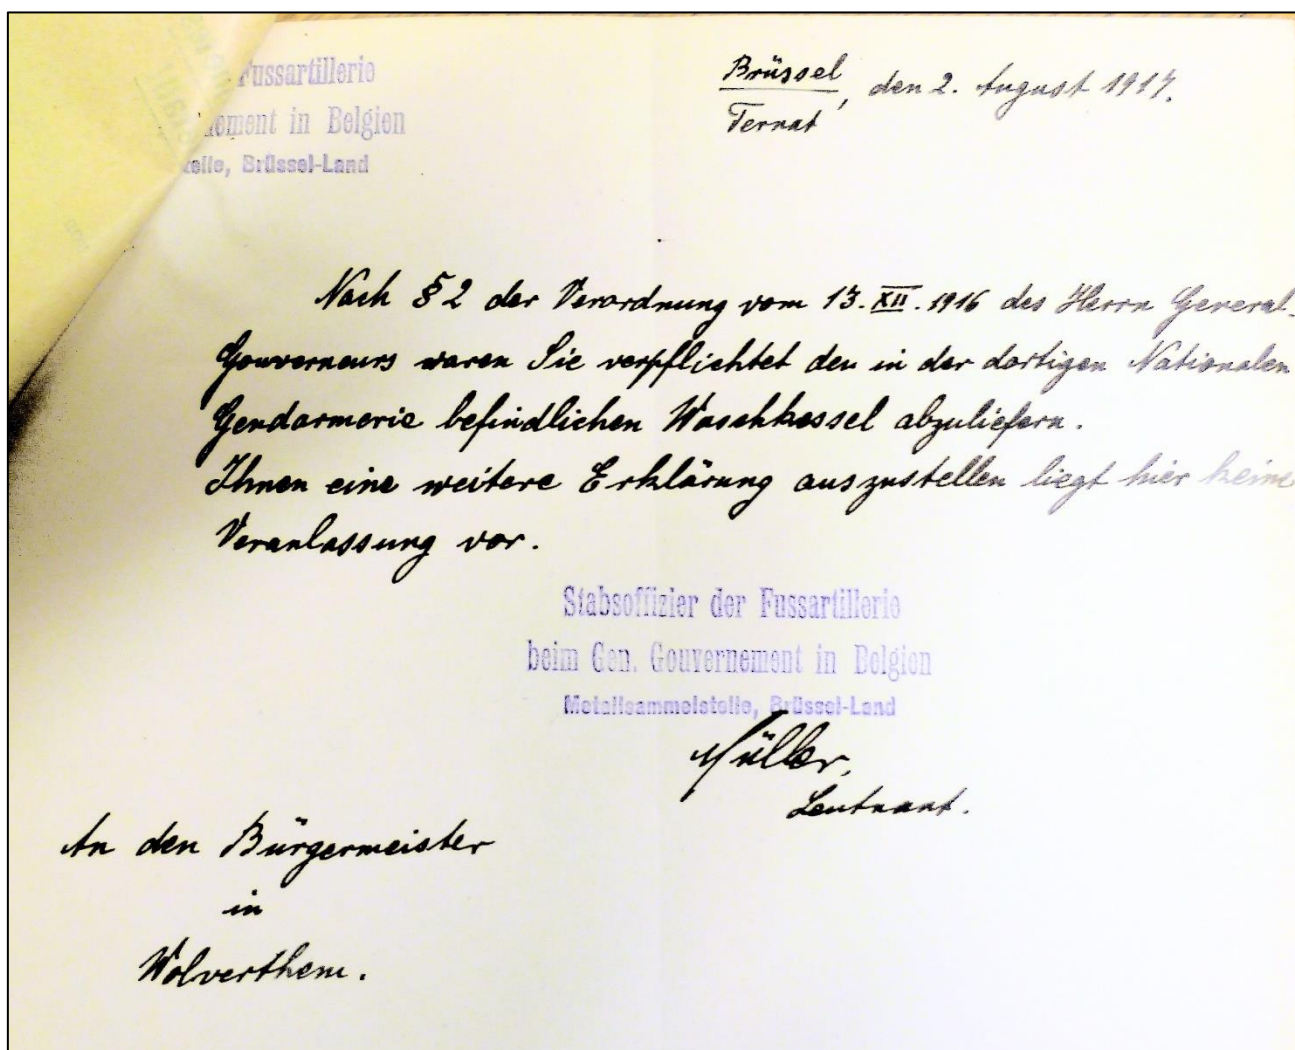 Fussartillerie
nement in Belgien
telle, Brüssel-Land
Brüssel
Ternat, den 2. August 1917.
Nach § 2 der Verordnung vom 13. XII. 1916 des Herrn General-
Gouverneurs waren Sie verpflichtet den in der dortigen Nationalen
Gendarmerie befindlichen Waschkessel abzuliefern.
Ihnen eine weitere Erklärung auszustellen liegt hier keine
Veranlassung vor.
Stabsoffizier der Fussartillerie
beim Gen. Gouvernement in Belgien
Metallsammelstelle, Brüssel-Land
Müller,
Leutnant.
An den Bürgermeister
in
Wolverthem.